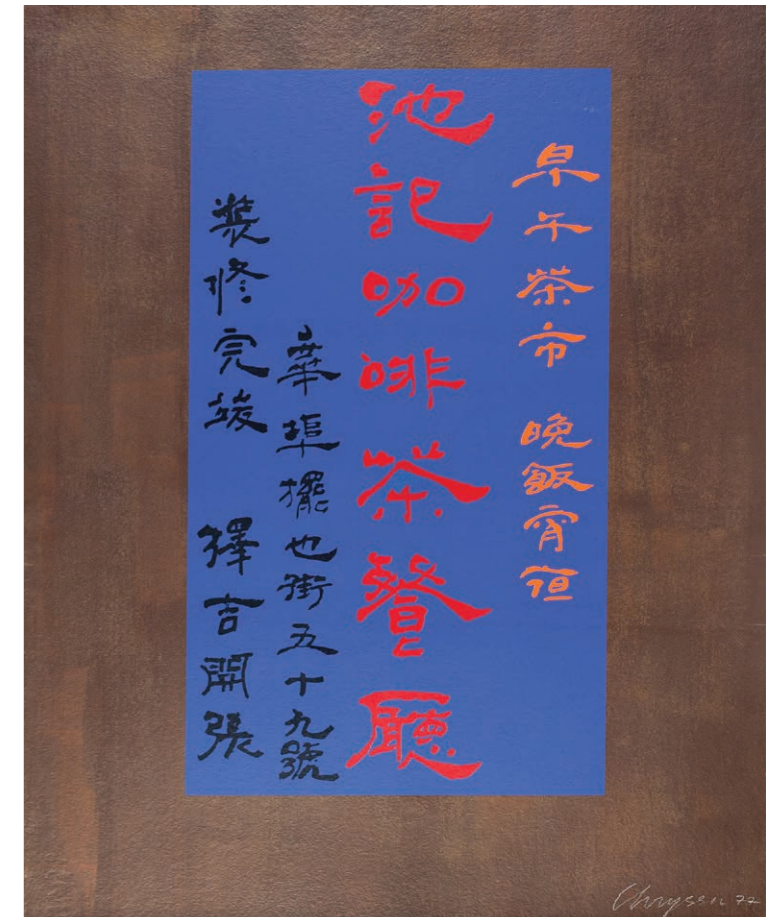 早午茶市 晚飯宵亱
池記咖啡茶餐廳
華埠擺也街五十九號
裝修完竣 擇吉開張
Chryssa 77